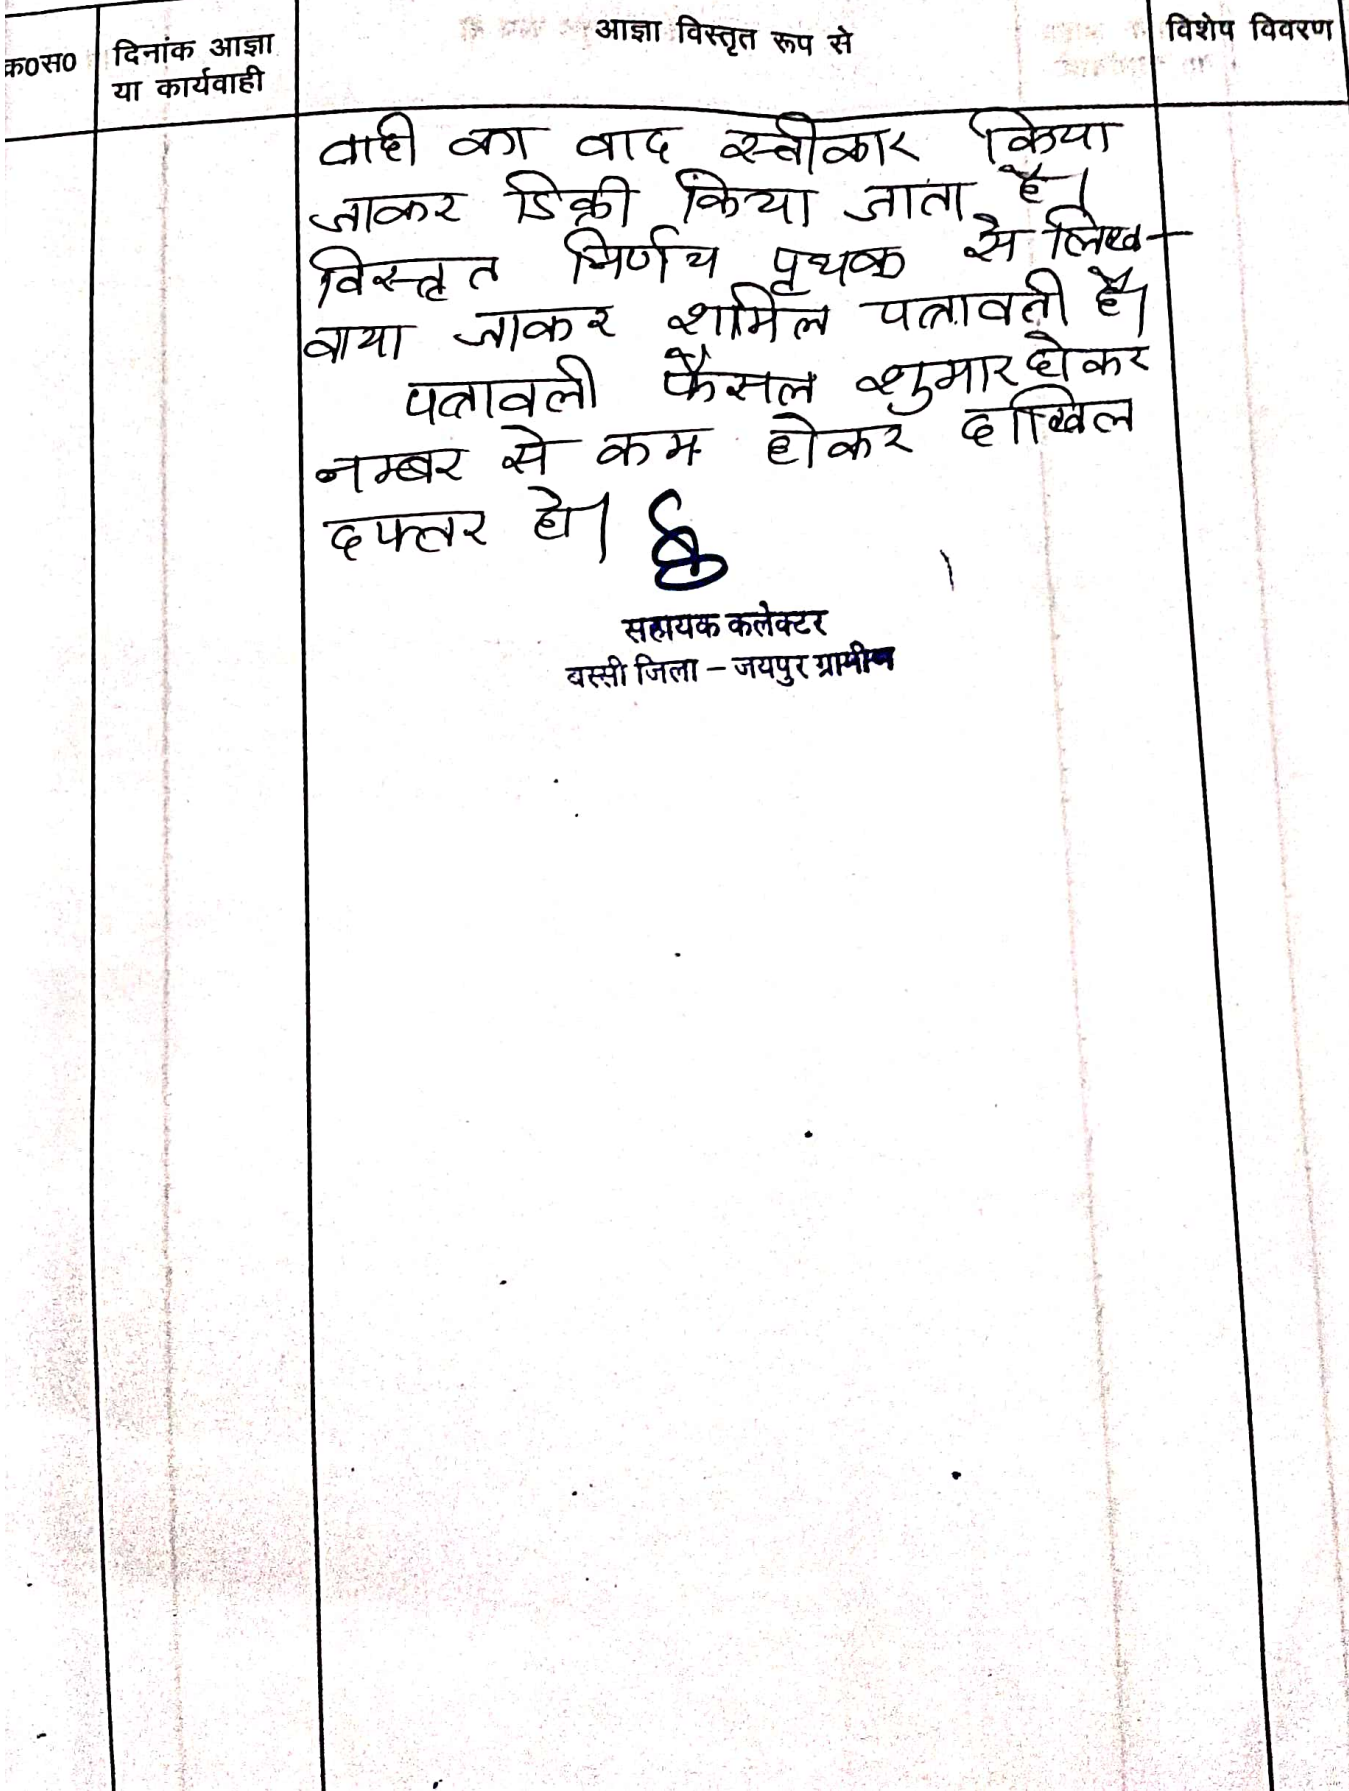 क०स०
दिनांक आज्ञा
या कार्यवाही
आज्ञा विस्तृत रूप से
विशेष विवरण
वादी का वाद स्वीकार किया
जाकर डिक्री किया जाता है।
विस्तृत निर्णय पृथक से लिख-
वाया जाकर शामिल पत्रावली है।
पत्रावली फैसल शुमार होकर
नम्बर से कम होकर दाखिल
दफ्तर हो।
सहायक कलेक्टर
बस्सी जिला – जयपुर ग्रामीण